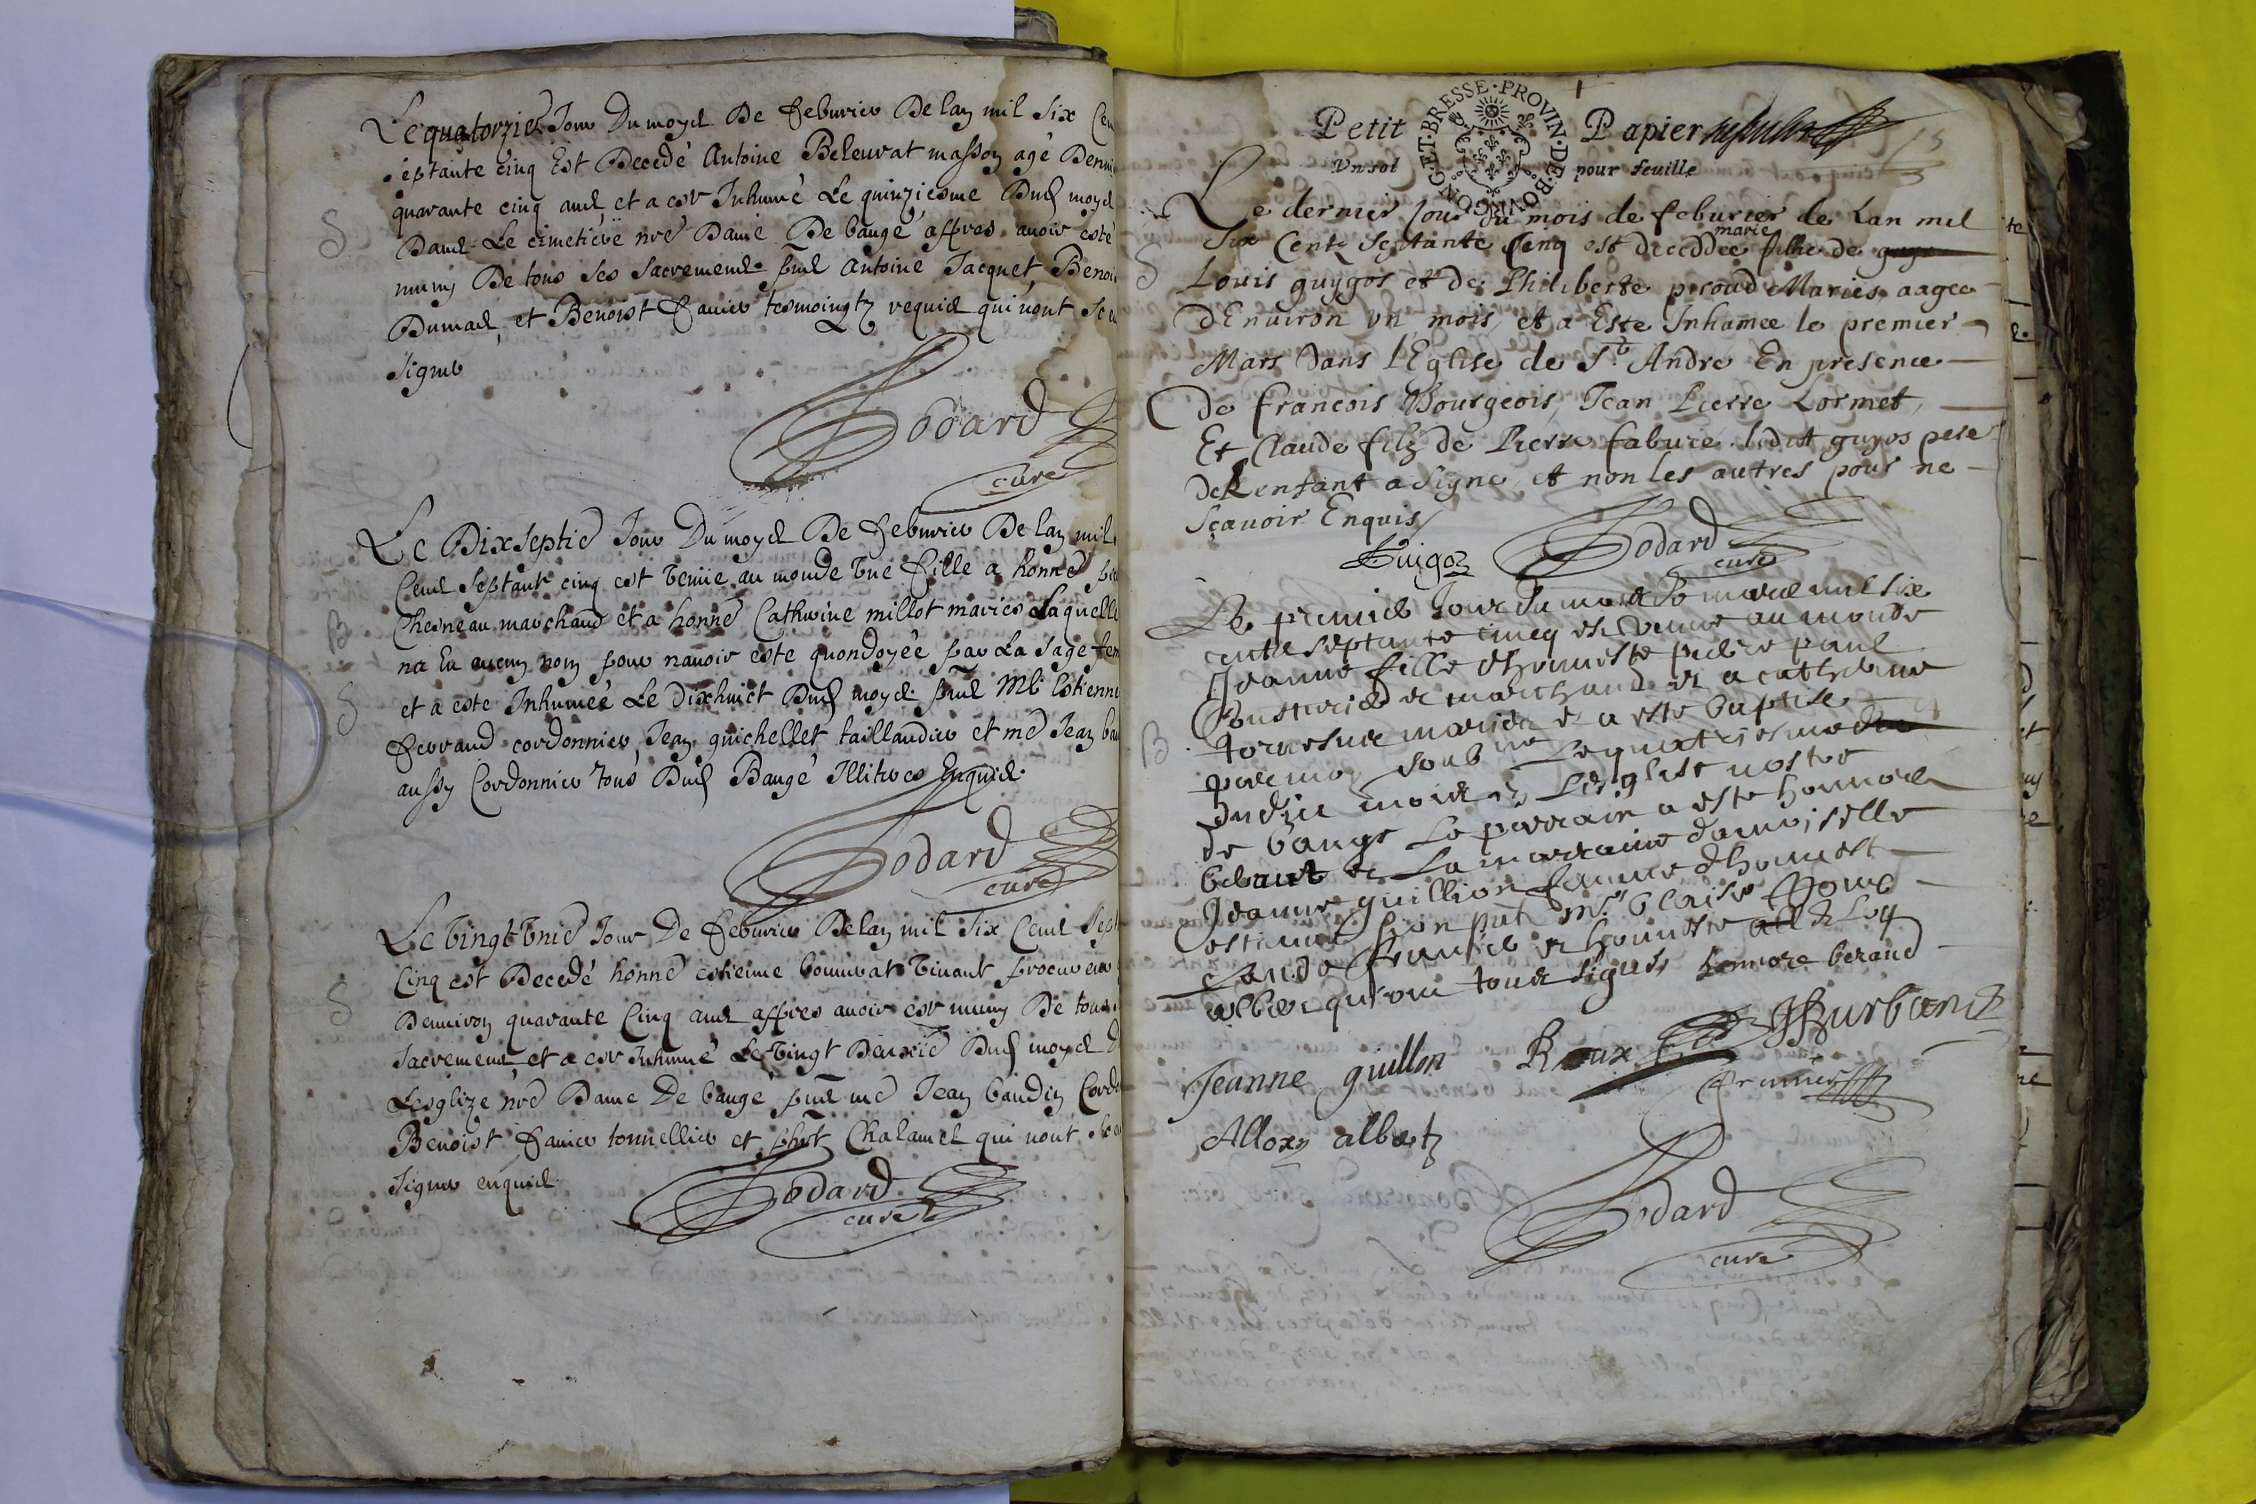 Le quatorzie Jour Du moys De febvrier De lan mil Six Cen
septante cinq Est Decedé Antoine Beleurat masson agé Denvi
quarante cinq ans et a este Inhumé Le quinziesme Dud moys
Dans Le cimetiere nre Dame De baugé appres avoir esté
muny De tous ses sacremens pnt Antoine Jacquet Benoi
Dumas et Benoist favier tesmoingtz requis qui nont Sce
signer
Bodard
curé
Le Dixseptie Jour Du moys De febvrier De lan mil
Cens septante cinq est Venüe au monde Vne fille a honne
Chesneau marchand et a honne Catherine millot mariés Laquelle
na Eu aucun nom pour navoir esté quondoyée par La sage fem
et a esté Inhumée Le Dixhuict Dud moys pnt Me Estienne
ferrand cordonnier Jean guichellet taillandier et me Jean bau
aussy Cordonnier tous Dud Baugé Illitres Enquis
Bodard
curé
Le Vingt Vnie Jour De febvrier De lan mil Six Cens Sept
Cinq est Decedé honne estienne bonnivat Vivant procureur
Denviron quarante Cinq ans appres avoir este muny De tous
Sacremens et a este Inhumé Le Vingt Deuxie Dud moys D
Lesglize nre Dame De baugé pnt me Jean baudin Cordo
Benoist favier tonnellier et phlt Chalamel qui nont Sce
signer enquis
Bodard
curé
Petit Papier
GENER. DE BOURGONG. ET BRESSE. PROVIN. DE
Vn sol pour feuille
Le dernier Jour du mois de febvrier de Lan mil
Six Centz Septante Cinq est deceddee marie fillie de
Louis guygos et de Philiberte peroud Mariés aagee
dEnviron un mois, et a Este Inhamee le premier
Mars dans lEglise de St Andre En presence
de francois Bourgeois, Jean Pierre Lormet,
Et Claude filz de Pierre fabvre ledit guygos pere
de Lenfant a signe, et non les autres pour ne
Sçavoir Enquis
Guigoz Bodard
curé
Le premier Jour du mois de mars mil six
cents septante cincq est venue au monde
Jeanne fille dhonneste pierre paul
marchand et a catherine
mariés et a este baptisé
par moy soubsigné Le quatriesme
dudit mois en Lesglise nostre
de bauge Le parrain a este honnore
beraut et La marraine damoiselle
Jeanne guillion femme dhonnest
estienne pnt Mr blaise
et honneste
albert qui ont tous signés honnore beraud
Jeanne guillon Roux JBurband
Grumet
Alloxy albert
Bodard
curé